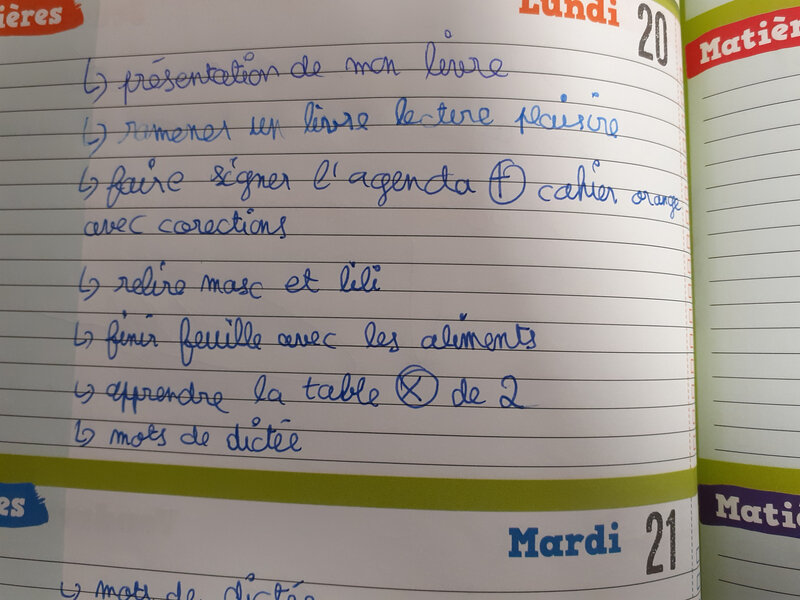 ières
Lundi 20
Matièr
↳ présentation de mon livre
↳ ramener un livre lecture plaisire
↳ faire signer l'agenda (+) cahier orange
avec corections
↳ relire masc et lili
↳ finir feuille avec les aliments
↳ apprendre la table (x) de 2
↳ mots de dictée
es
Mardi 21
Matiè
↳ mots de dictée